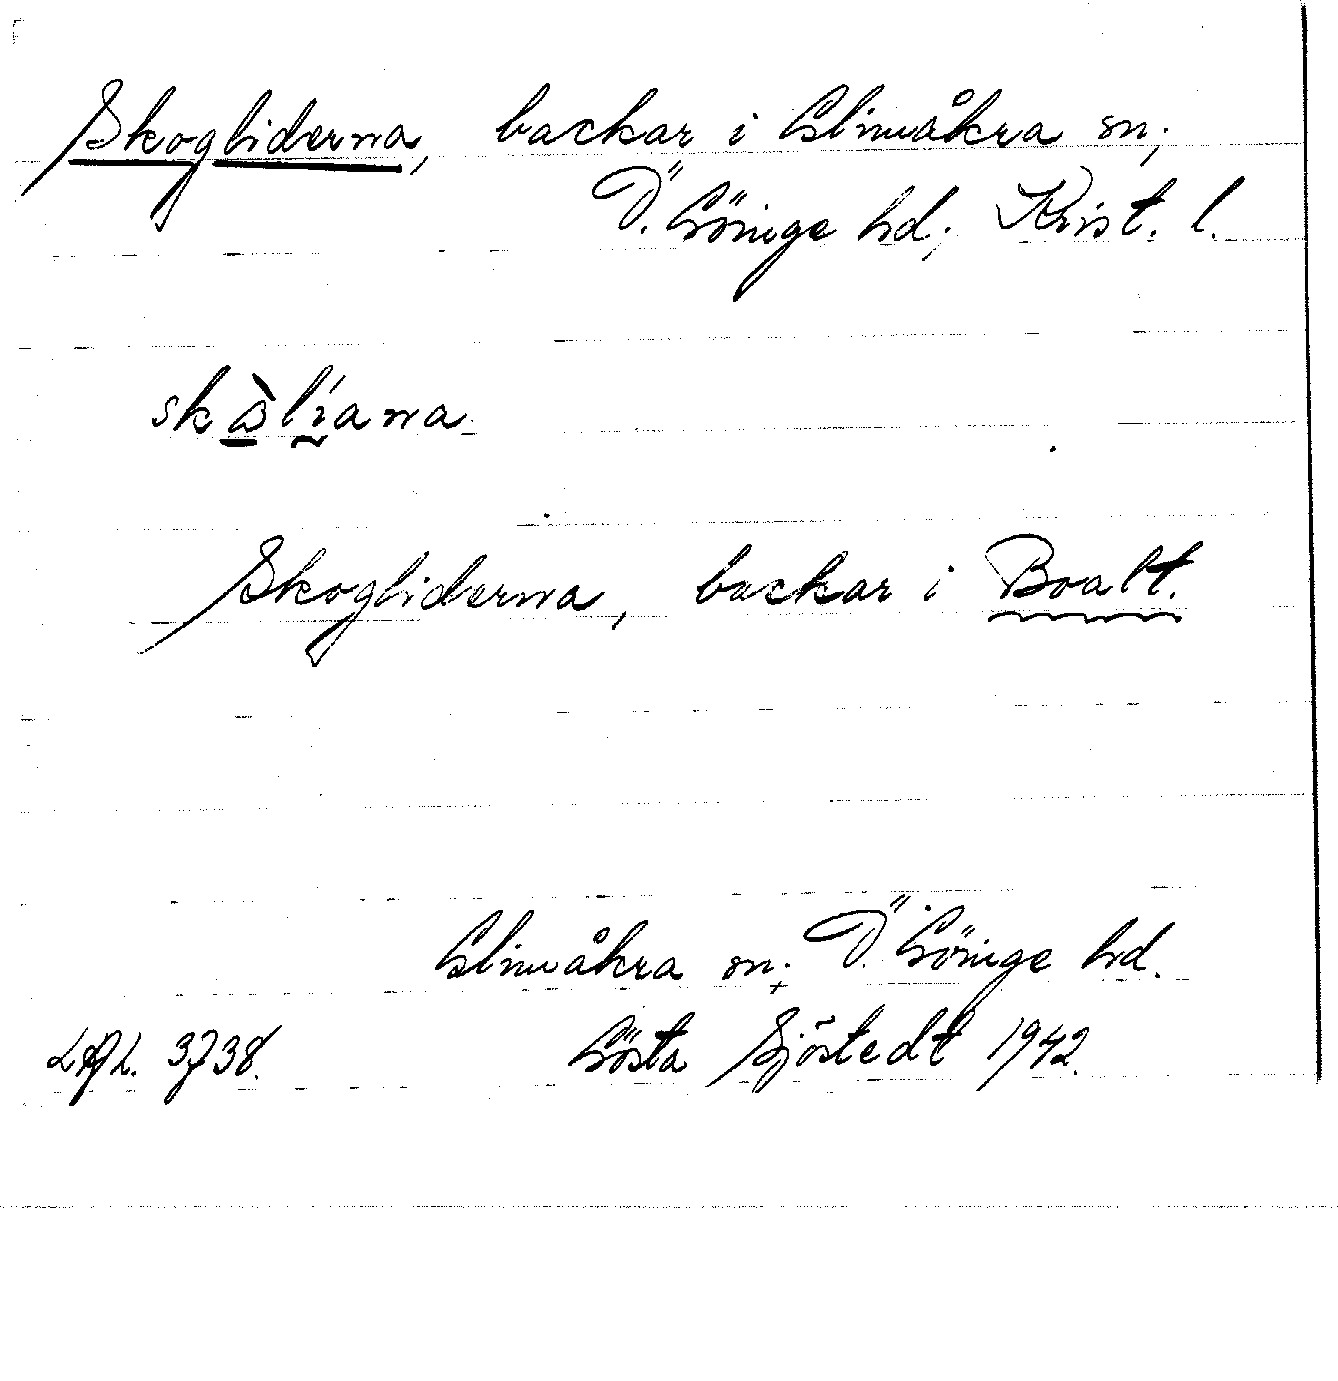 Skogliderna, backar i Glimåkra sn;
Ö. Göinge hd; Krist. l.
skàlíana
Skogliderna, backar i Boalt.
Glimåkra sn; Ö. Göinge hd.
3738. Gösta Sjöstedt 1942.